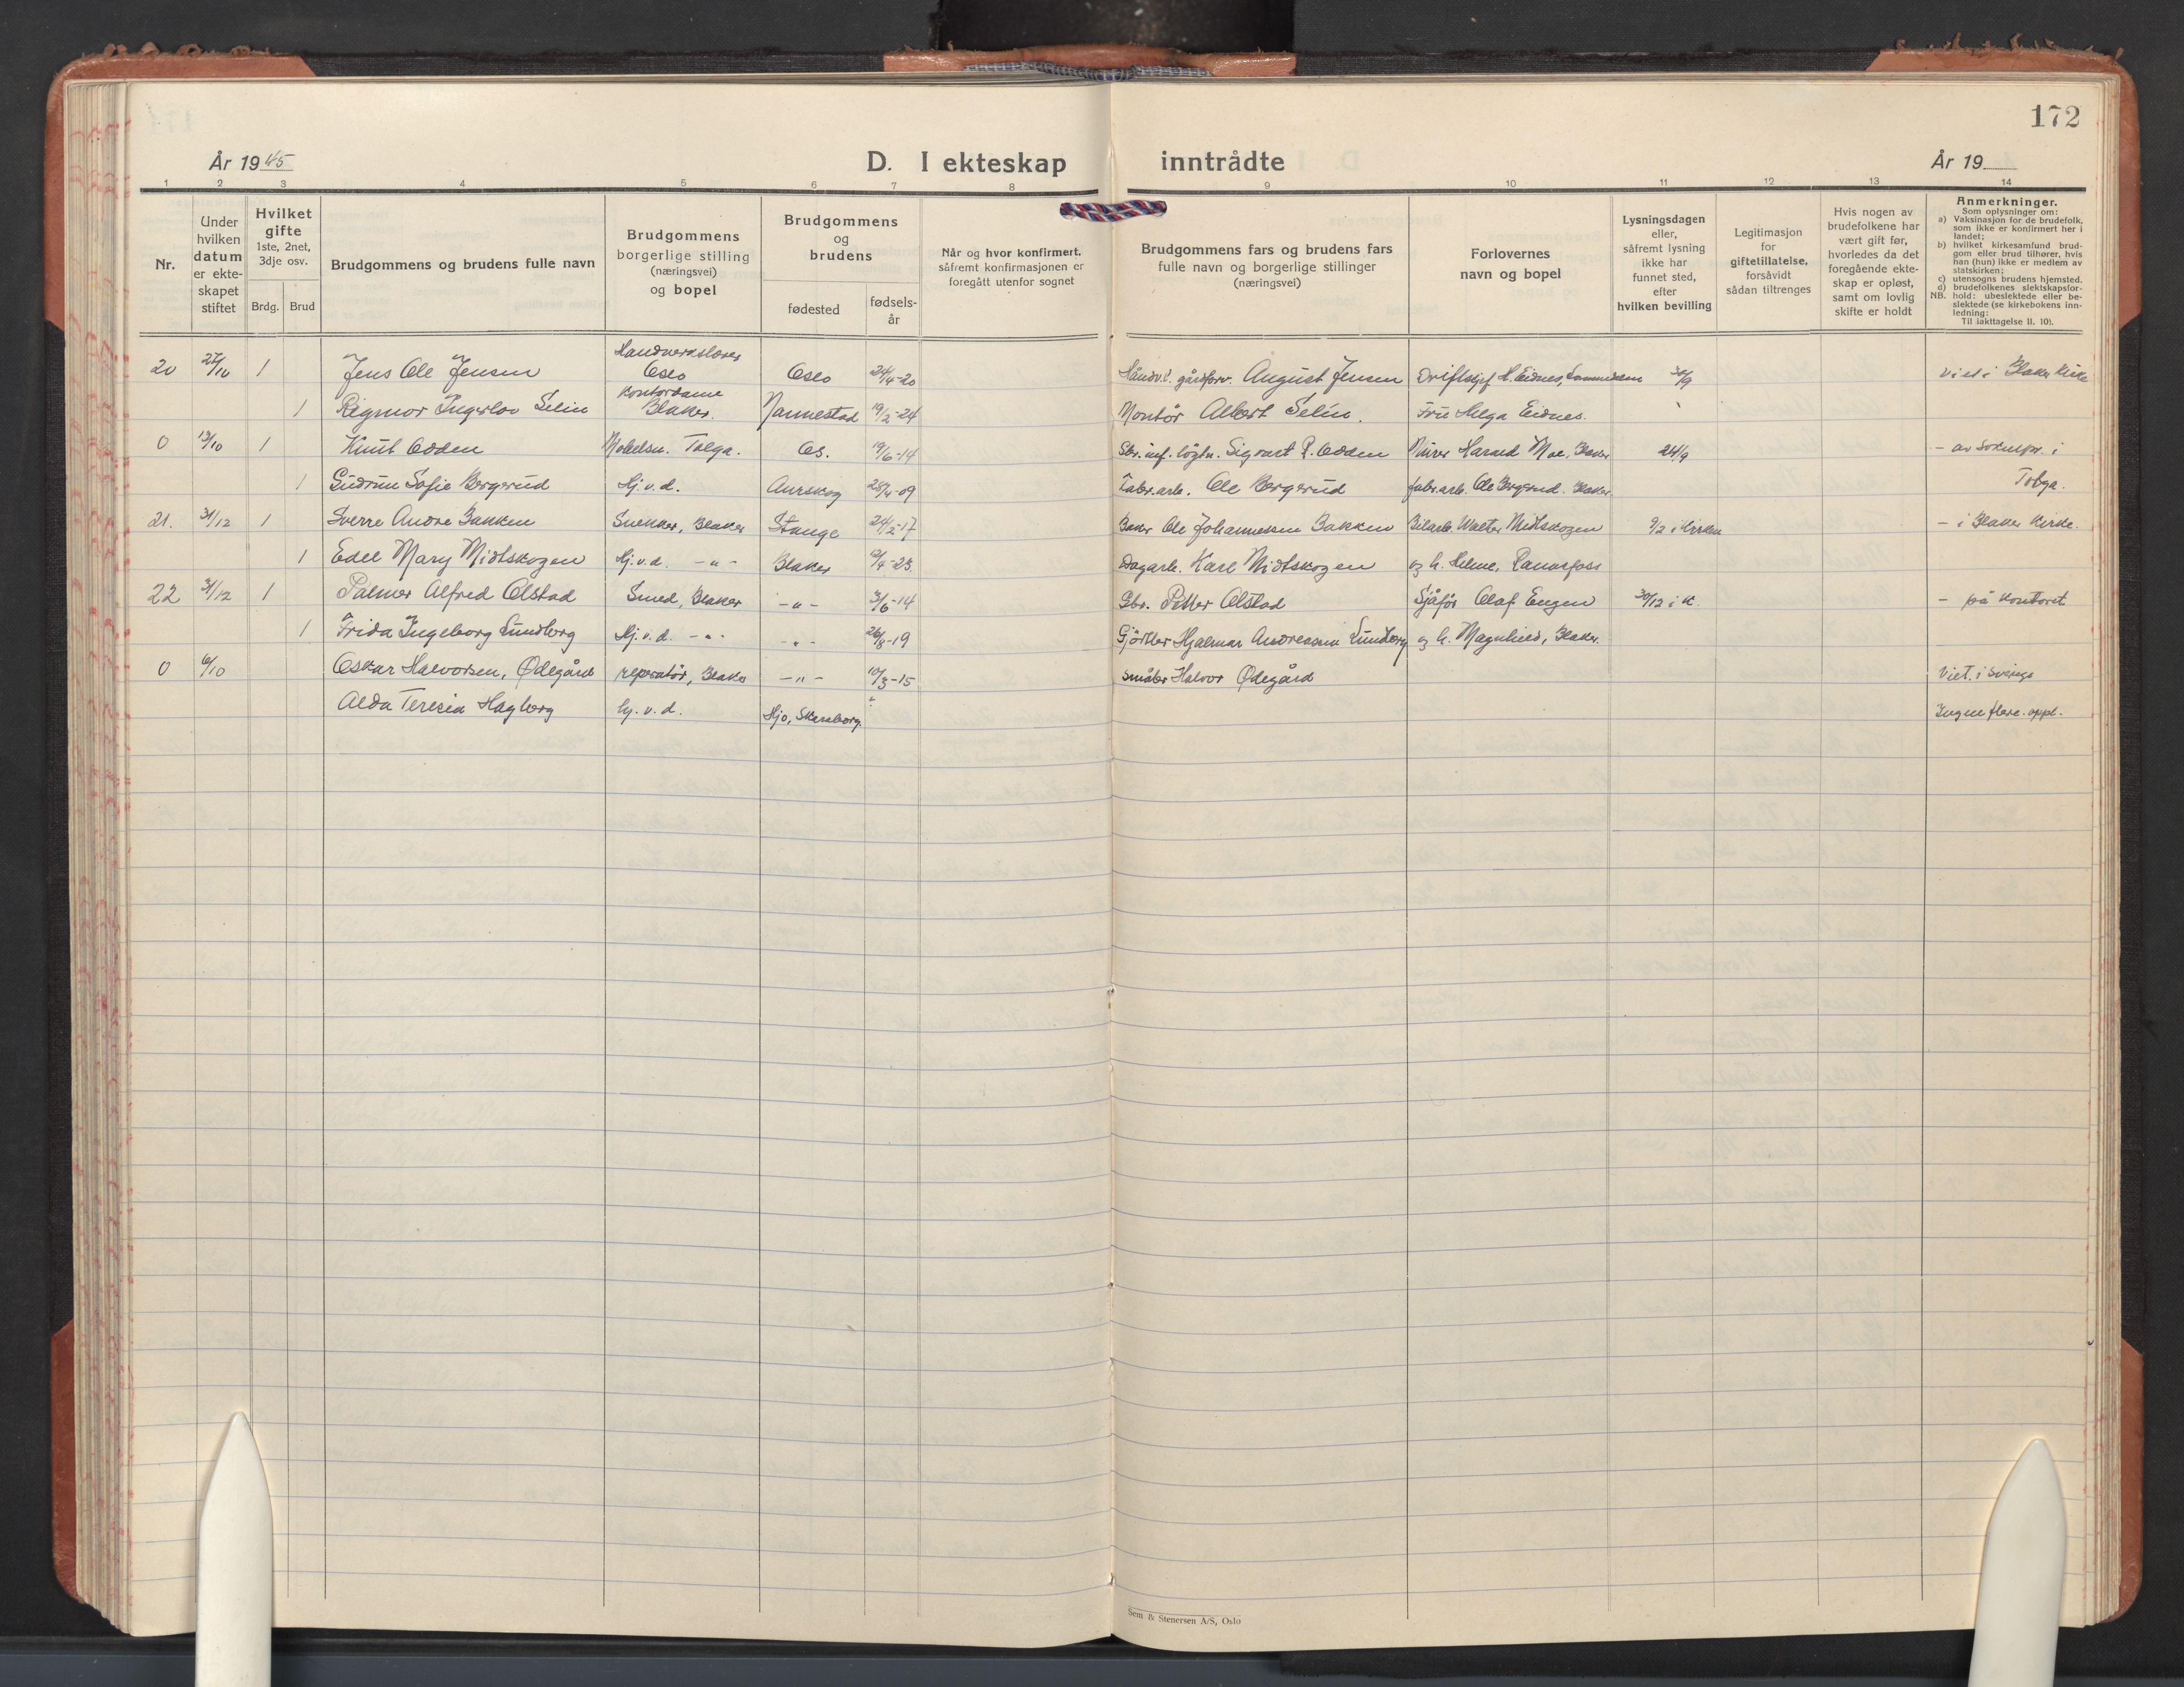 172
År 1945
D. I ekteskap inntrådte
År 19
1 2 3 4 5 6 7 8 9 10 11 12 13 14
Nr.
Under hvilken datum er ekteskapet stiftet
Hvilket gifte 1ste, 2net, 3dje osv.
Brdg. Brud
Brudgommens og brudens fulle navn
Brudgommens borgerlige stilling (næringsvei) og bopel
Brudgommens og brudens
fødested
fødselsår
Når og hvor konfirmert, såfremt konfirmasjonen er foregått utenfor sognet
Brudgommens fars og brudens fars fulle navn og borgerlige stillinger (næringsvei)
Forlovernes navn og bopel
Lysningsdagen eller, såfremt lysning ikke har funnet sted, efter hvilken bevilling
Legitimasjon for giftetillatelse, forsåvidt sådan tiltrenges
Hvis nogen av brudefolkene har vært gift før, hvorledes da det foregående ekteskap er opløst, samt om lovlig skifte er holdt
Anmerkninger.
Som oplysninger om:
a) Vaksinasjon for de brudefolk, som ikke er konfirmert her i landet;
b) hvilket kirkesamfund brudgom eller brud tilhører, hvis han (hun) ikke er medlem av statskirken;
c) utensogns brudens hjemsted.
d) brudefolkenes slektskapsforhold: ubeslektede eller beslektede (se kirkebokens innledning:
NB.
Til iakttagelse II. 10).
20 27/10 1 Jens Ole Jensen Handverkslærer Oslo Oslo 24/4-20 Håndv. & gårdbrv. August Jensen Driftsbest. H. Eidnes, 30/9 Viet i Blaker Kirke
1 Rigmor Ingerlov Selin Kontordame Blaker. Nannestad 19/2-24 Montør Albert Selin. Fru Helga Eidnes.
0 13/10 1 Knut Odden Tolga. Os. 19/6-14 Sigvart P. Odden Murer Harald Moe, Blaker 24/9 - av Soknepr. i
1 Gudrun Sofie Bergerud Hj.v.d. Aurskog 25/4-09 Fabr.arb. Ole Bergerud fabr.arb. Ole Bergerud. Blaker Tolga.
21. 31/12 1 Sverre Andre Bakken Snekker, Blaker Stange 24/2-17 Baker Ole Johannessen Bakken Bilarb. Walter Midtskogen 9/2 i Kirken - i Blaker Kirke.
1 Edel Mary Midtskogen Hj.v.d. -"- Blaker 12/4-23 Dagarb. Karl Midtskogen og h. Helene, Rånåsfoss
22 31/12 1 Palmer Alfred Olstad Smed, Blaker -"- 3/6-14 Gbr. Petter Olstad Sjåfør Olaf Engen 30/12 i K. - på Kontoret
1 Frida Ingeborg Lundberg Hj.v.d. -"- -"- 26/8-19 Gjørtler Hjalmar Andreassen Lundberg og h. Magnhild, Blaker.
0 6/10 Oskar Halvorsen, Ødegård reperatør, Blaker -"- 10/3-15 småbr Halvor Ødegård Viet. i Sverige
Alda Teresia Hagberg hj.v.d. Hjo, Skaraborg. Ingen flere. oppl.
Sem & Stenersen A/S, Oslo